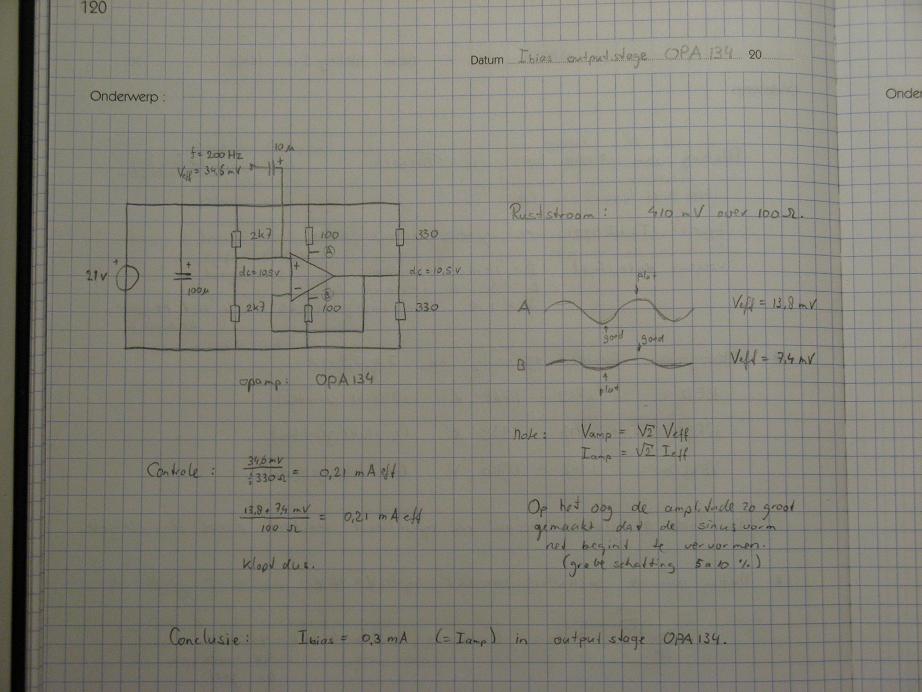 120
Datum Ibias output stage OPA 134 20
Onderwerp :
Onder
f = 200 Hz
Veff = 34,6 mV
10 µ
+
2k7
100
330
A
21 V
+
+
100µ
dc = 10,5V
+
−
dc = 10,5 V
B
2k7
100
330
opamp : OPA 134
Ruststroom : 410 mV over 100 Ω.
plat
A
Veff = 13,8 mV
goed
goed
B
Veff = 7,4 mV
plat
note : Vamp = √2 Veff
Iamp = √2 Ieff
Controle : 34,6 mV / ½·330 Ω = 0,21 mA eff
13,8 + 7,4 mV / 100 Ω = 0,21 mA eff
Klopt dus.
Op het oog de amplitude zo groot
gemaakt dat de sinusvorm
net begint te vervormen.
(grove schatting 5 a 10 %)
Conclusie : Ibias = 0,3 mA (= Iamp) in output stage OPA 134.